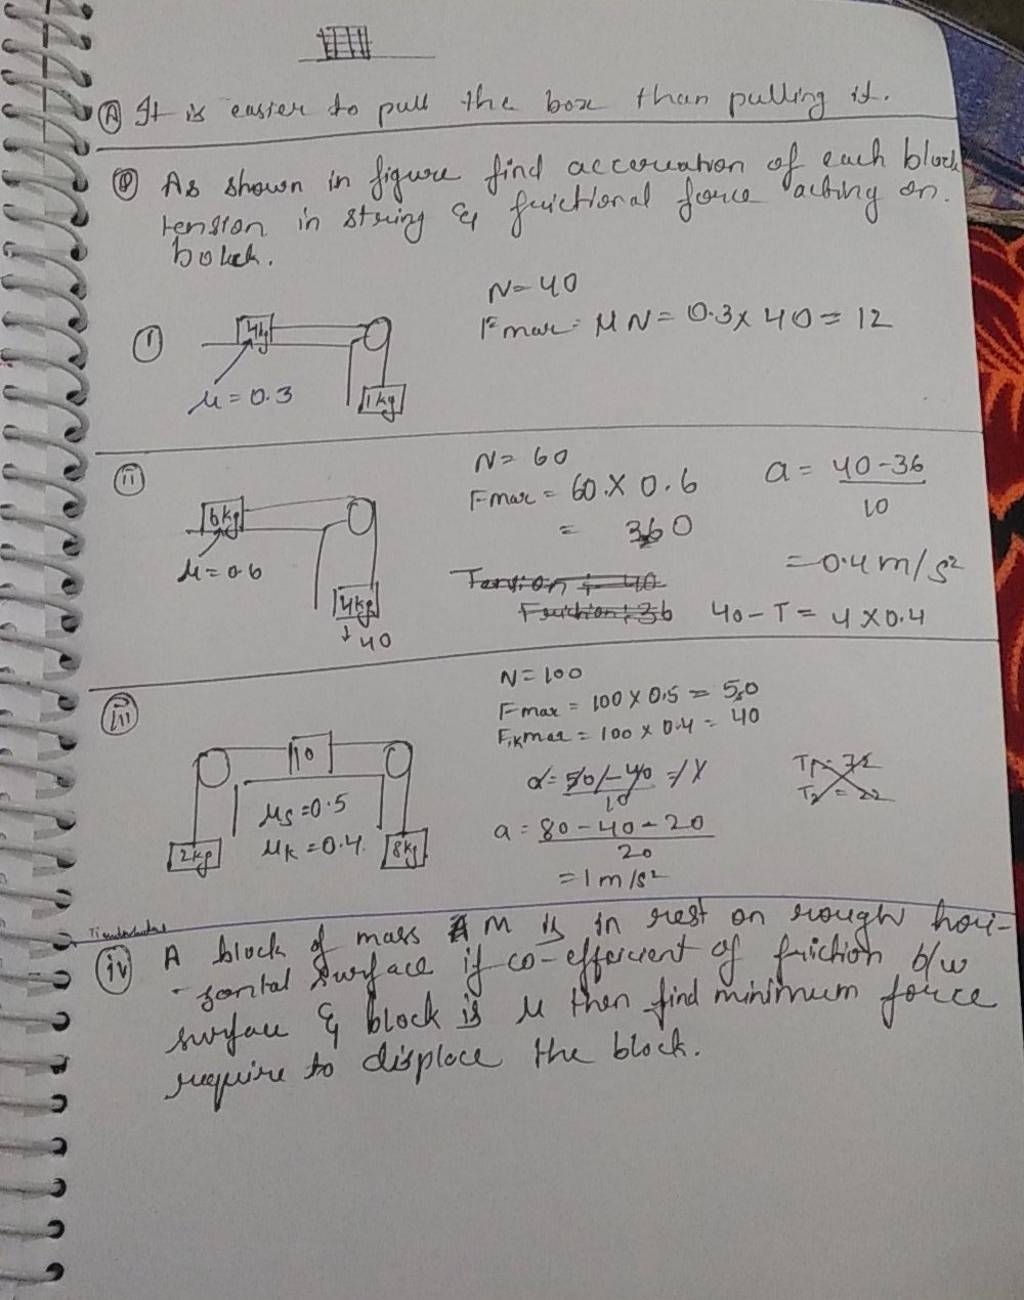 (A) It is easier to pull the box than pulling it.
(Q) As shown in figure find acceruation of each block
tension in string & frictional force acting on.
bolck.
(I) 4kg
μ = 0.3
1kg
N = 40
Fmax = μN = 0.3 x 40 = 12
(II) 6kg
μ = 0.6
4kg
↓ 40
N = 60
Fmax = 60 X 0.6
= 360
Tension : 40
Friction : 36
a = 40-36
10
= 0.4 m/s²
40 - T = 4 X 0.4
(III) 10
μs = 0.5
μk = 0.4.
2kg
8kg
N = 100
Fmax = 100 X 0.5 = 50
F,kmax = 100 x 0.4 = 40
a = 50 - 40 = 1
10
a = 80 - 40 - 20
20
= 1 m/s²
T2 = 22
(iv) A block of mass M is in rest on rough hori-
-zontal surface if co-efficient of friction b/w
surface & block is μ then find minimum force
require to displace the block.